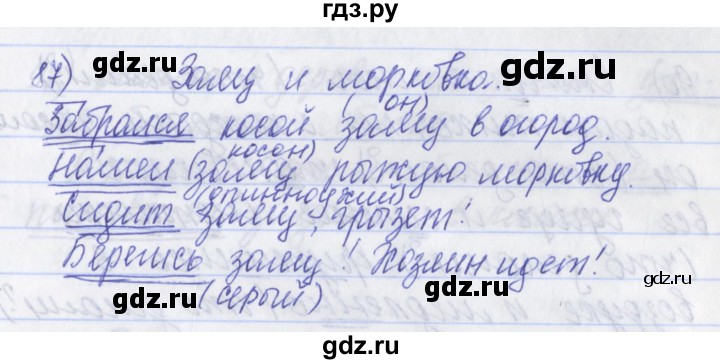 гдз.ру
87) Заяц и морковка.
(он)
Забрался косой заяц в огород.
(косой)
Нашел заяц рыжую морковку.
(длинноухий)
Сидит заяц, грызет!
Берегись заяц! Хозяин идет!
(серый)
gdz.ru
gdz.ru
gdz.ru
gdz.ru
gdz.ru
gdz.ru
gdz.ru
gdz.ru
gdz.ru